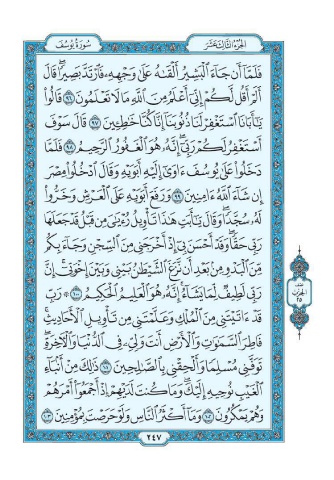 سُورَةُ يُوسُفَ
الجُزْءُ الثَّالِثَ عَشَرَ
فَلَمَّآ أَن جَآءَ ٱلْبَشِيرُ أَلْقَىٰهُ عَلَىٰ وَجْهِهِۦ فَٱرْتَدَّ بَصِيرًا ۖ قَالَ
أَلَمْ أَقُل لَّكُمْ إِنِّىٓ أَعْلَمُ مِنَ ٱللَّهِ مَا لَا تَعْلَمُونَ ٩٦ قَالُوا۟
يَٰٓأَبَانَا ٱسْتَغْفِرْ لَنَا ذُنُوبَنَآ إِنَّا كُنَّا خَٰطِـِٔينَ ٩٧ قَالَ سَوْفَ
أَسْتَغْفِرُ لَكُمْ رَبِّىٓ ۖ إِنَّهُۥ هُوَ ٱلْغَفُورُ ٱلرَّحِيمُ ٩٨ فَلَمَّا
دَخَلُوا۟ عَلَىٰ يُوسُفَ ءَاوَىٰٓ إِلَيْهِ أَبَوَيْهِ وَقَالَ ٱدْخُلُوا۟ مِصْرَ
إِن شَآءَ ٱللَّهُ ءَامِنِينَ ٩٩ وَرَفَعَ أَبَوَيْهِ عَلَى ٱلْعَرْشِ وَخَرُّوا۟
لَهُۥ سُجَّدًا ۖ وَقَالَ يَٰٓأَبَتِ هَٰذَا تَأْوِيلُ رُءْيَٰىَ مِن قَبْلُ قَدْ جَعَلَهَا
رَبِّى حَقًّا ۖ وَقَدْ أَحْسَنَ بِىٓ إِذْ أَخْرَجَنِى مِنَ ٱلسِّجْنِ وَجَآءَ بِكُم
مِّنَ ٱلْبَدْوِ مِنۢ بَعْدِ أَن نَّزَغَ ٱلشَّيْطَٰنُ بَيْنِى وَبَيْنَ إِخْوَتِىٓ ۚ إِنَّ
رَبِّى لَطِيفٌ لِّمَا يَشَآءُ ۚ إِنَّهُۥ هُوَ ٱلْعَلِيمُ ٱلْحَكِيمُ ١٠٠ ۞ رَبِّ
قَدْ ءَاتَيْتَنِى مِنَ ٱلْمُلْكِ وَعَلَّمْتَنِى مِن تَأْوِيلِ ٱلْأَحَادِيثِ ۚ
فَاطِرَ ٱلسَّمَٰوَٰتِ وَٱلْأَرْضِ أَنتَ وَلِىِّۦ فِى ٱلدُّنْيَا وَٱلْءَاخِرَةِ ۖ
تَوَفَّنِى مُسْلِمًا وَأَلْحِقْنِى بِٱلصَّٰلِحِينَ ١٠١ ذَٰلِكَ مِنْ أَنۢبَآءِ
ٱلْغَيْبِ نُوحِيهِ إِلَيْكَ ۖ وَمَا كُنتَ لَدَيْهِمْ إِذْ أَجْمَعُوٓا۟ أَمْرَهُمْ
وَهُمْ يَمْكُرُونَ ١٠٢ وَمَآ أَكْثَرُ ٱلنَّاسِ وَلَوْ حَرَصْتَ بِمُؤْمِنِينَ ١٠٣
نصف
الحزب
٢٥
٢٤٧